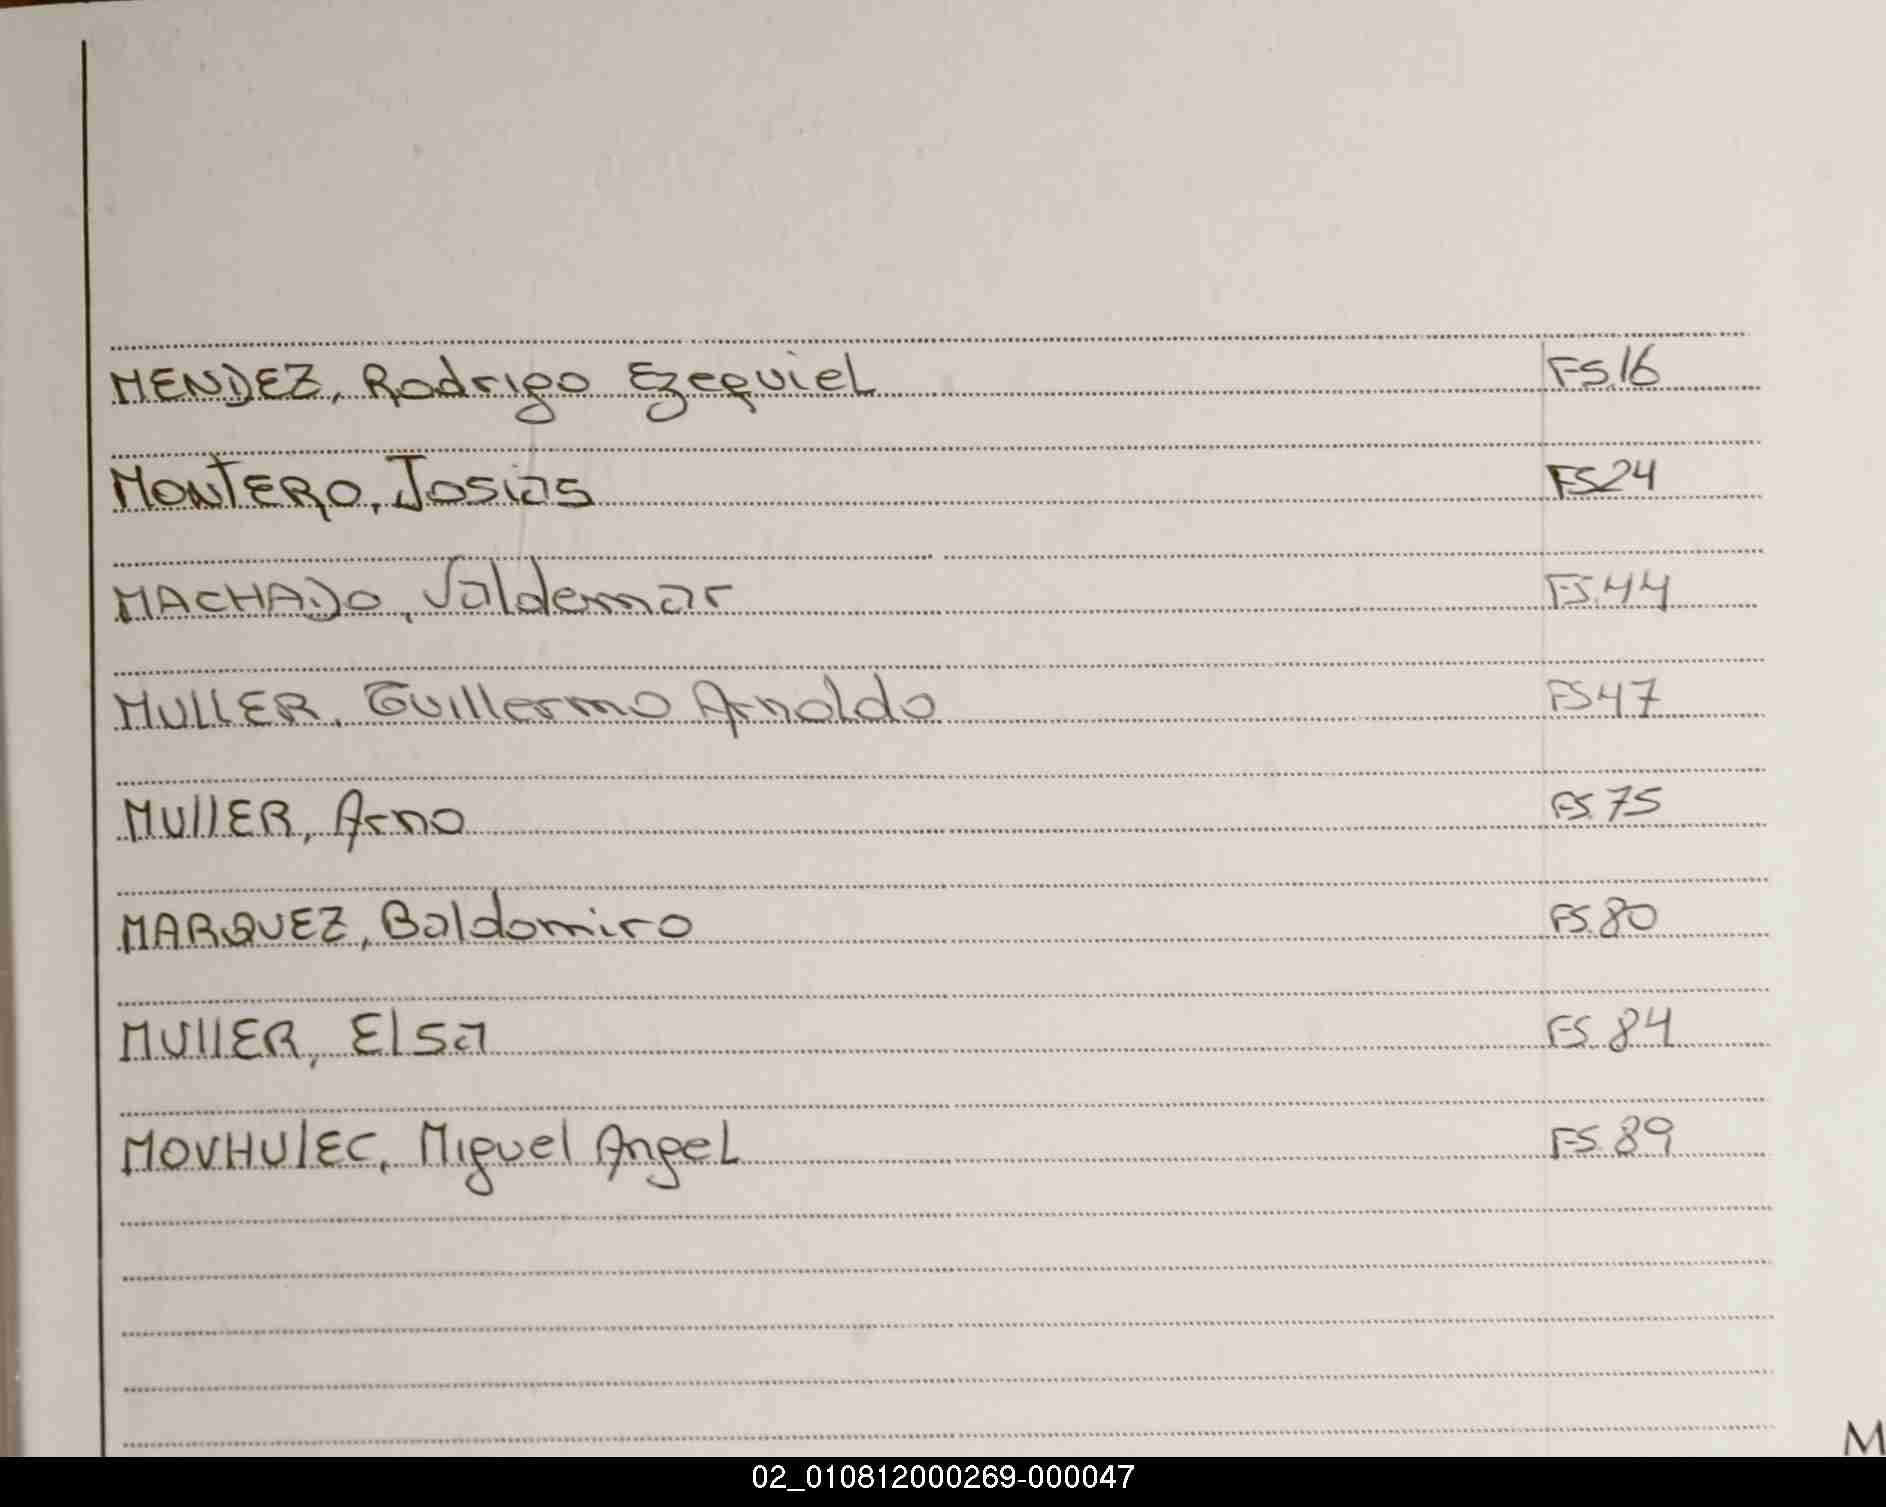 MENDEZ, Rodrigo Ezequiel FS.16
MONTERO, Josias FS24
MACHADO, Valdemar FS.44
MULLER, Guillermo Arnoldo FS47
MUllER, Arno FS.75
MARQUEZ, Baldomiro FS.80
MUllER, Elsa FS.84
MOVHUlEC, Miguel Angel FS.89
M
02_010812000269-000047